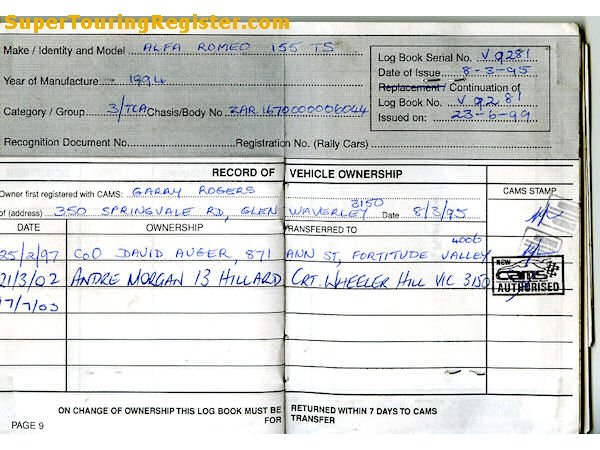 SuperTouringRegister.com
Make / Identity and Model ALFA ROMEO 155 TS
Log Book Serial No. V 9281
Year of Manufacture 1994
Date of Issue 8-3-95
Replacement / Continuation of
Category / Group 3/TCA Chassis/Body No ZAR 1670000006044
Log Book No. V 9281
Issued on: 23-6-99
Recognition Document No. Registration No. (Rally Cars)
RECORD OF VEHICLE OWNERSHIP
Owner first registered with CAMS: GARRY ROGERS
CAMS STAMP
of (address) 350 SPRINGVALE RD, GLEN WAVERLEY 3150 Date 8/3/95
DATE OWNERSHIP TRANSFERRED TO
25/2/97 COO DAVID AUGER, 871 ANN ST, FORTITUDE VALLEY 4006
21/3/02 ANDRE MORGAN 13 HILLARD CRT. WHEELER HILL VIC 3150
17/7/03
NSW
CAMS
AUTHORISED
ON CHANGE OF OWNERSHIP THIS LOG BOOK MUST BE RETURNED WITHIN 7 DAYS TO CAMS
FOR TRANSFER
PAGE 9